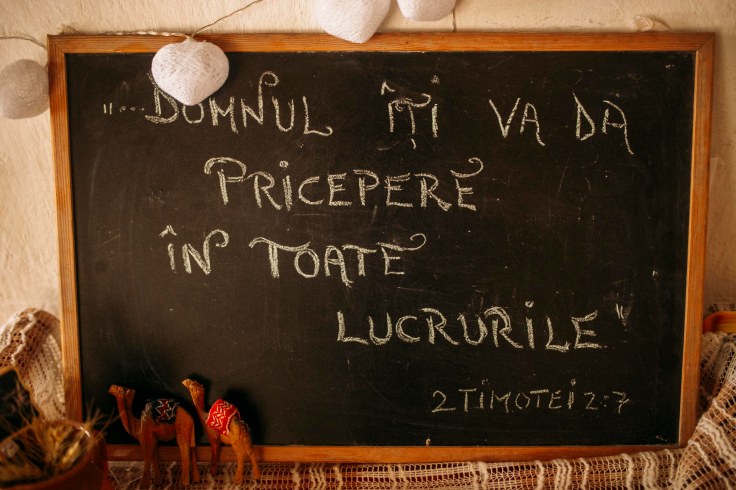 "...DOMNUL ÎȚI VA DA
PRICEPERE
ÎN TOATE
LUCRURILE"
2 TIMOTEI 2:7